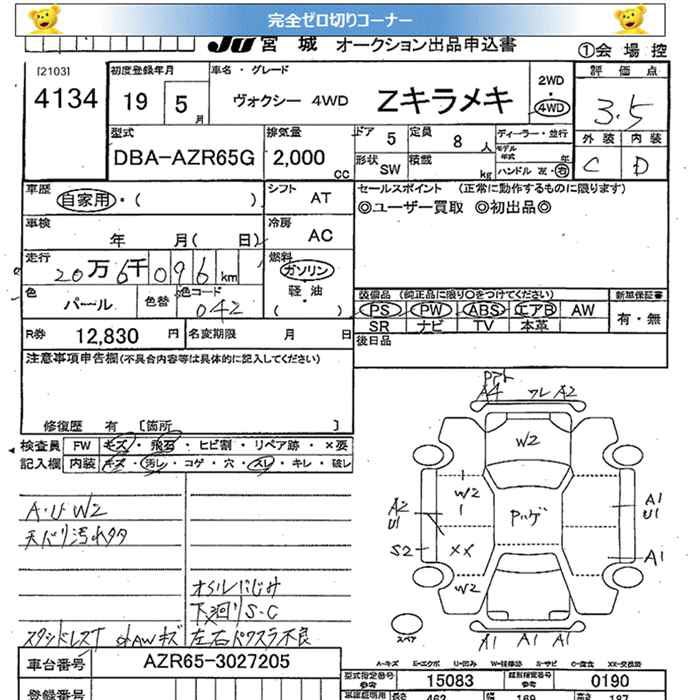 完全ゼロ切りコーナー
JU 宮城 オークション出品申込書
①会場控
[2103]
4134
初度登録年月
19 5 月
車名・グレード
ヴォクシー 4WD Zキラメキ
2WD
・
4WD
評価点
3.5
型式
DBA-AZR65G
排気量
2,000 cc
ドア 5
定員 8 人
形状 SW
積載 kg
ディーラー・並行
モデル年式 年
ハンドル 左・右
外装 内装
C D
車歴
自家用・( )
シフト AT
セールスポイント (正常に動作するものに限ります)
◎ユーザー買取 ◎初出品◎
車検
年 月( 日)
冷房 AC
走行
20万6千096km
燃料
ガソリン
軽・油
( ・ )
色 パール
色替
色コード 042
装備品 (純正品に限り○をつけてください)
新車保証書
PS PW ABS エアB AW
SR ナビ TV 本革
有・無
R券 12,830 円
名変期限 月 日
後日品
注意事項申告欄(不具合内容等は具体的に記入してください)
修復歴 有 [箇所 ]
検査員
記入欄
FW キズ・飛石・ヒビ割・リペア跡・×要
内装 キズ・汚レ・コゲ・穴・スレ・キレ・破レ
A・U W2
天バリ汚れタタ
オイルにじみ
下廻りS・C
スタッドレスT
AWキズ
左右Pワスラ不良
A4 ワレA2
W2
W2
A2
U1
S2
Pハゲ
A1
U1
XX
A1
W2
スペア
A1 A1 A1
A-キズ E-エクボ U-凹み W-補修跡 S-サビ C-腐食 XX-交換跡
車台番号 AZR65-3027205
型式指定番号 参考 15083
類別指定番号 参考 0190
登録番号
長さ 462
幅 169
高さ 187